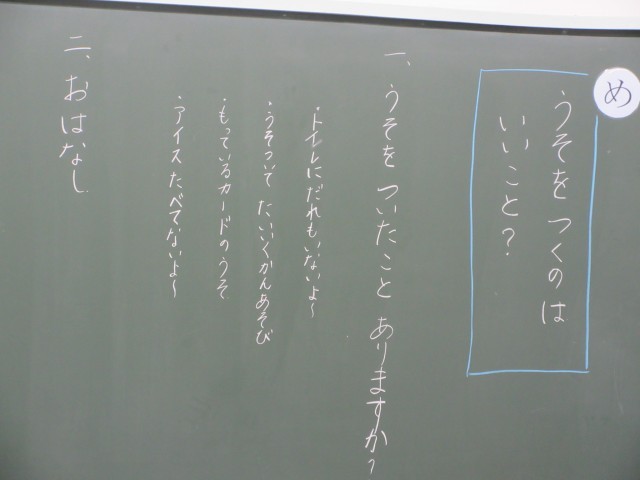 め
うそを つくのは
いいこと？
一、うそを ついたこと ありますか？
・トイレにだれもいないよ～
・うそついて たいいくかんあそび
・もっているカードのうそ
・アイスたべてないよ～
二、おはなし